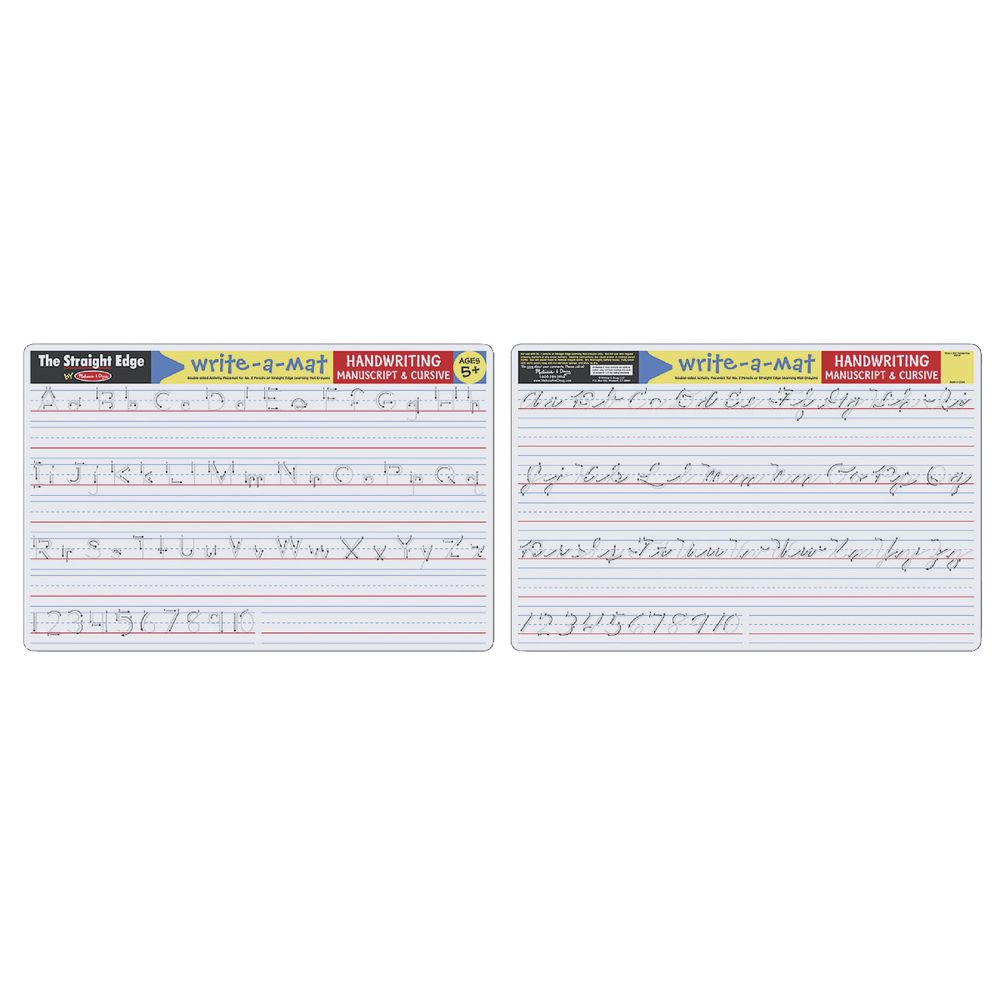 The Straight Edge
by Melissa & Doug
write-a-Mat
HANDWRITING
MANUSCRIPT & CURSIVE
AGES
5+
Aa Bb Cc Dd Ee Ff Gg Hh
Ii Jj Kk Ll Mm Nn Oo Pp Qq
Rr Ss Tt Uu Vv Ww Xx Yy Zz
12345678910
write-a-Mat
HANDWRITING
MANUSCRIPT & CURSIVE
Aa Bb Cc Dd Ee Ff Gg Hh Ii
Jj Kk Ll Mm Nn Oo Pp Qq
Rr Ss Tt Uu Vv Ww Xx Yy Zz
12345678910